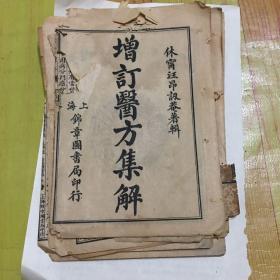 休寧汪昂訒菴著輯
增訂醫方集解
上海錦章圖書局印行